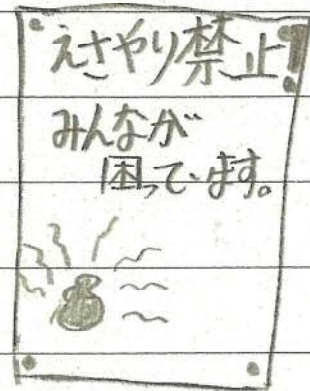 えさやり禁止!
みんなが
困っています。